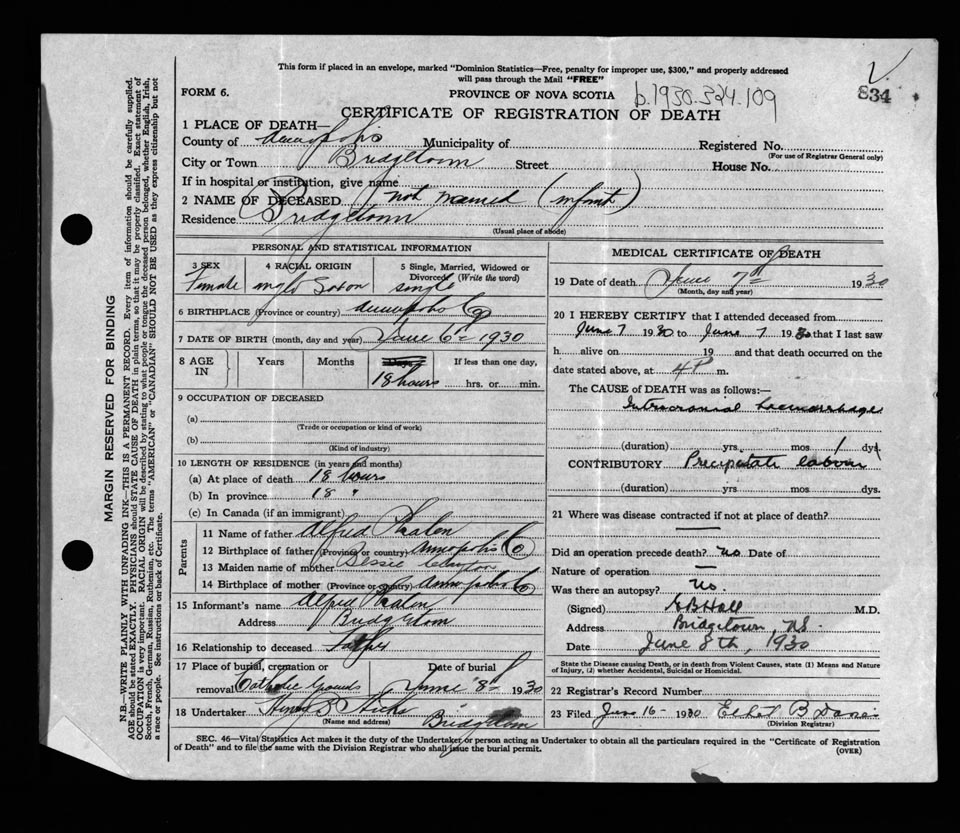 This form if placed in an envelope, marked "Dominion Statistics—Free, penalty for improper use, $300," and properly addressed
will pass through the Mail "FREE"
FORM 6.
PROVINCE OF NOVA SCOTIA
b.1930.324.109
834
CERTIFICATE OF REGISTRATION OF DEATH
1 PLACE OF DEATH—
County of Annapolis Municipality of Registered No.
(For use of Registrar General only)
City or Town Bridgetown Street House No.
If in hospital or institution, give name
2 NAME OF DECEASED not named (infant)
Residence Bridgetown
(Usual place of abode)
PERSONAL AND STATISTICAL INFORMATION
3 SEX 4 RACIAL ORIGIN 5 Single, Married, Widowed or
Divorced (Write the word)
Female anglo Saxon single
6 BIRTHPLACE (Province or country) Annapolis Co
7 DATE OF BIRTH (month, day and year) June 6th 1930
8 AGE IN Years Months Days If less than one day,
18 hours hrs. or min.
9 OCCUPATION OF DECEASED
(a)
(Trade or occupation or kind of work)
(b)
(Kind of industry)
10 LENGTH OF RESIDENCE (in years and months)
(a) At place of death 18 hours
(b) In province 18 "
(c) In Canada (if an immigrant)
Parents
11 Name of father Alfred
12 Birthplace of father (Province or country) Annapolis Co
13 Maiden name of mother Bessie
14 Birthplace of mother (Province or country) Annapolis Co
15 Informant's name Alfred
Address Bridgetown
16 Relationship to deceased Father
17 Place of burial, cremation or Date of burial
removal Catholic Grounds June 8th 1930
18 Undertaker Hicks
(Name and address) Bridgetown
MEDICAL CERTIFICATE OF DEATH
19 Date of death June 7th 1930
(Month, day and year)
20 I HEREBY CERTIFY that I attended deceased from
June 7 1930 to June 7 1930 that I last saw
h alive on 19 and that death occurred on
date stated above, at 4 P m.
The CAUSE of DEATH was as follows:—
Intracranial haemorrhage
(duration) yrs. mos 1 dys.
CONTRIBUTORY Precipitate labour
(duration) yrs. mos. dys.
21 Where was disease contracted if not at place of death?
Did an operation precede death? no Date of
Nature of operation —
Was there an autopsy? No.
(Signed) Hall M.D.
Address Bridgetown, N.S.
Date June 8th, 1930
State the Disease causing Death, or in death from Violent Causes, state (1) Means and Nature
of Injury, (2) whether Accidental, Suicidal or Homicidal.
22 Registrar's Record Number
23 Filed June 16 - 1930
(Division Registrar)
SEC. 46—Vital Statistics Act makes it the duty of the Undertaker or person acting as Undertaker to obtain all the particulars required in the "Certificate of Registration
of Death" and to file the same with the Division Registrar who shall issue the burial permit. (OVER)
MARGIN RESERVED FOR BINDING
N.B.—WRITE PLAINLY WITH UNFADING INK—THIS IS A PERMANENT RECORD. Every item of information should be carefully supplied.
AGE should be stated EXACTLY. PHYSICIANS should STATE CAUSE OF DEATH in plain terms, so that it may be properly classified. Exact statement of
OCCUPATION is very important. RACIAL ORIGIN will be described by stating to what people or tongue the deceased person belonged, whether English, Irish,
Scotch, French, German, Russian, Ruthenian, etc. The terms "AMERICAN" or "CANADIAN" SHOULD NOT BE USED as they express citizenship but not
a race or people. See instructions on back of Certificate.